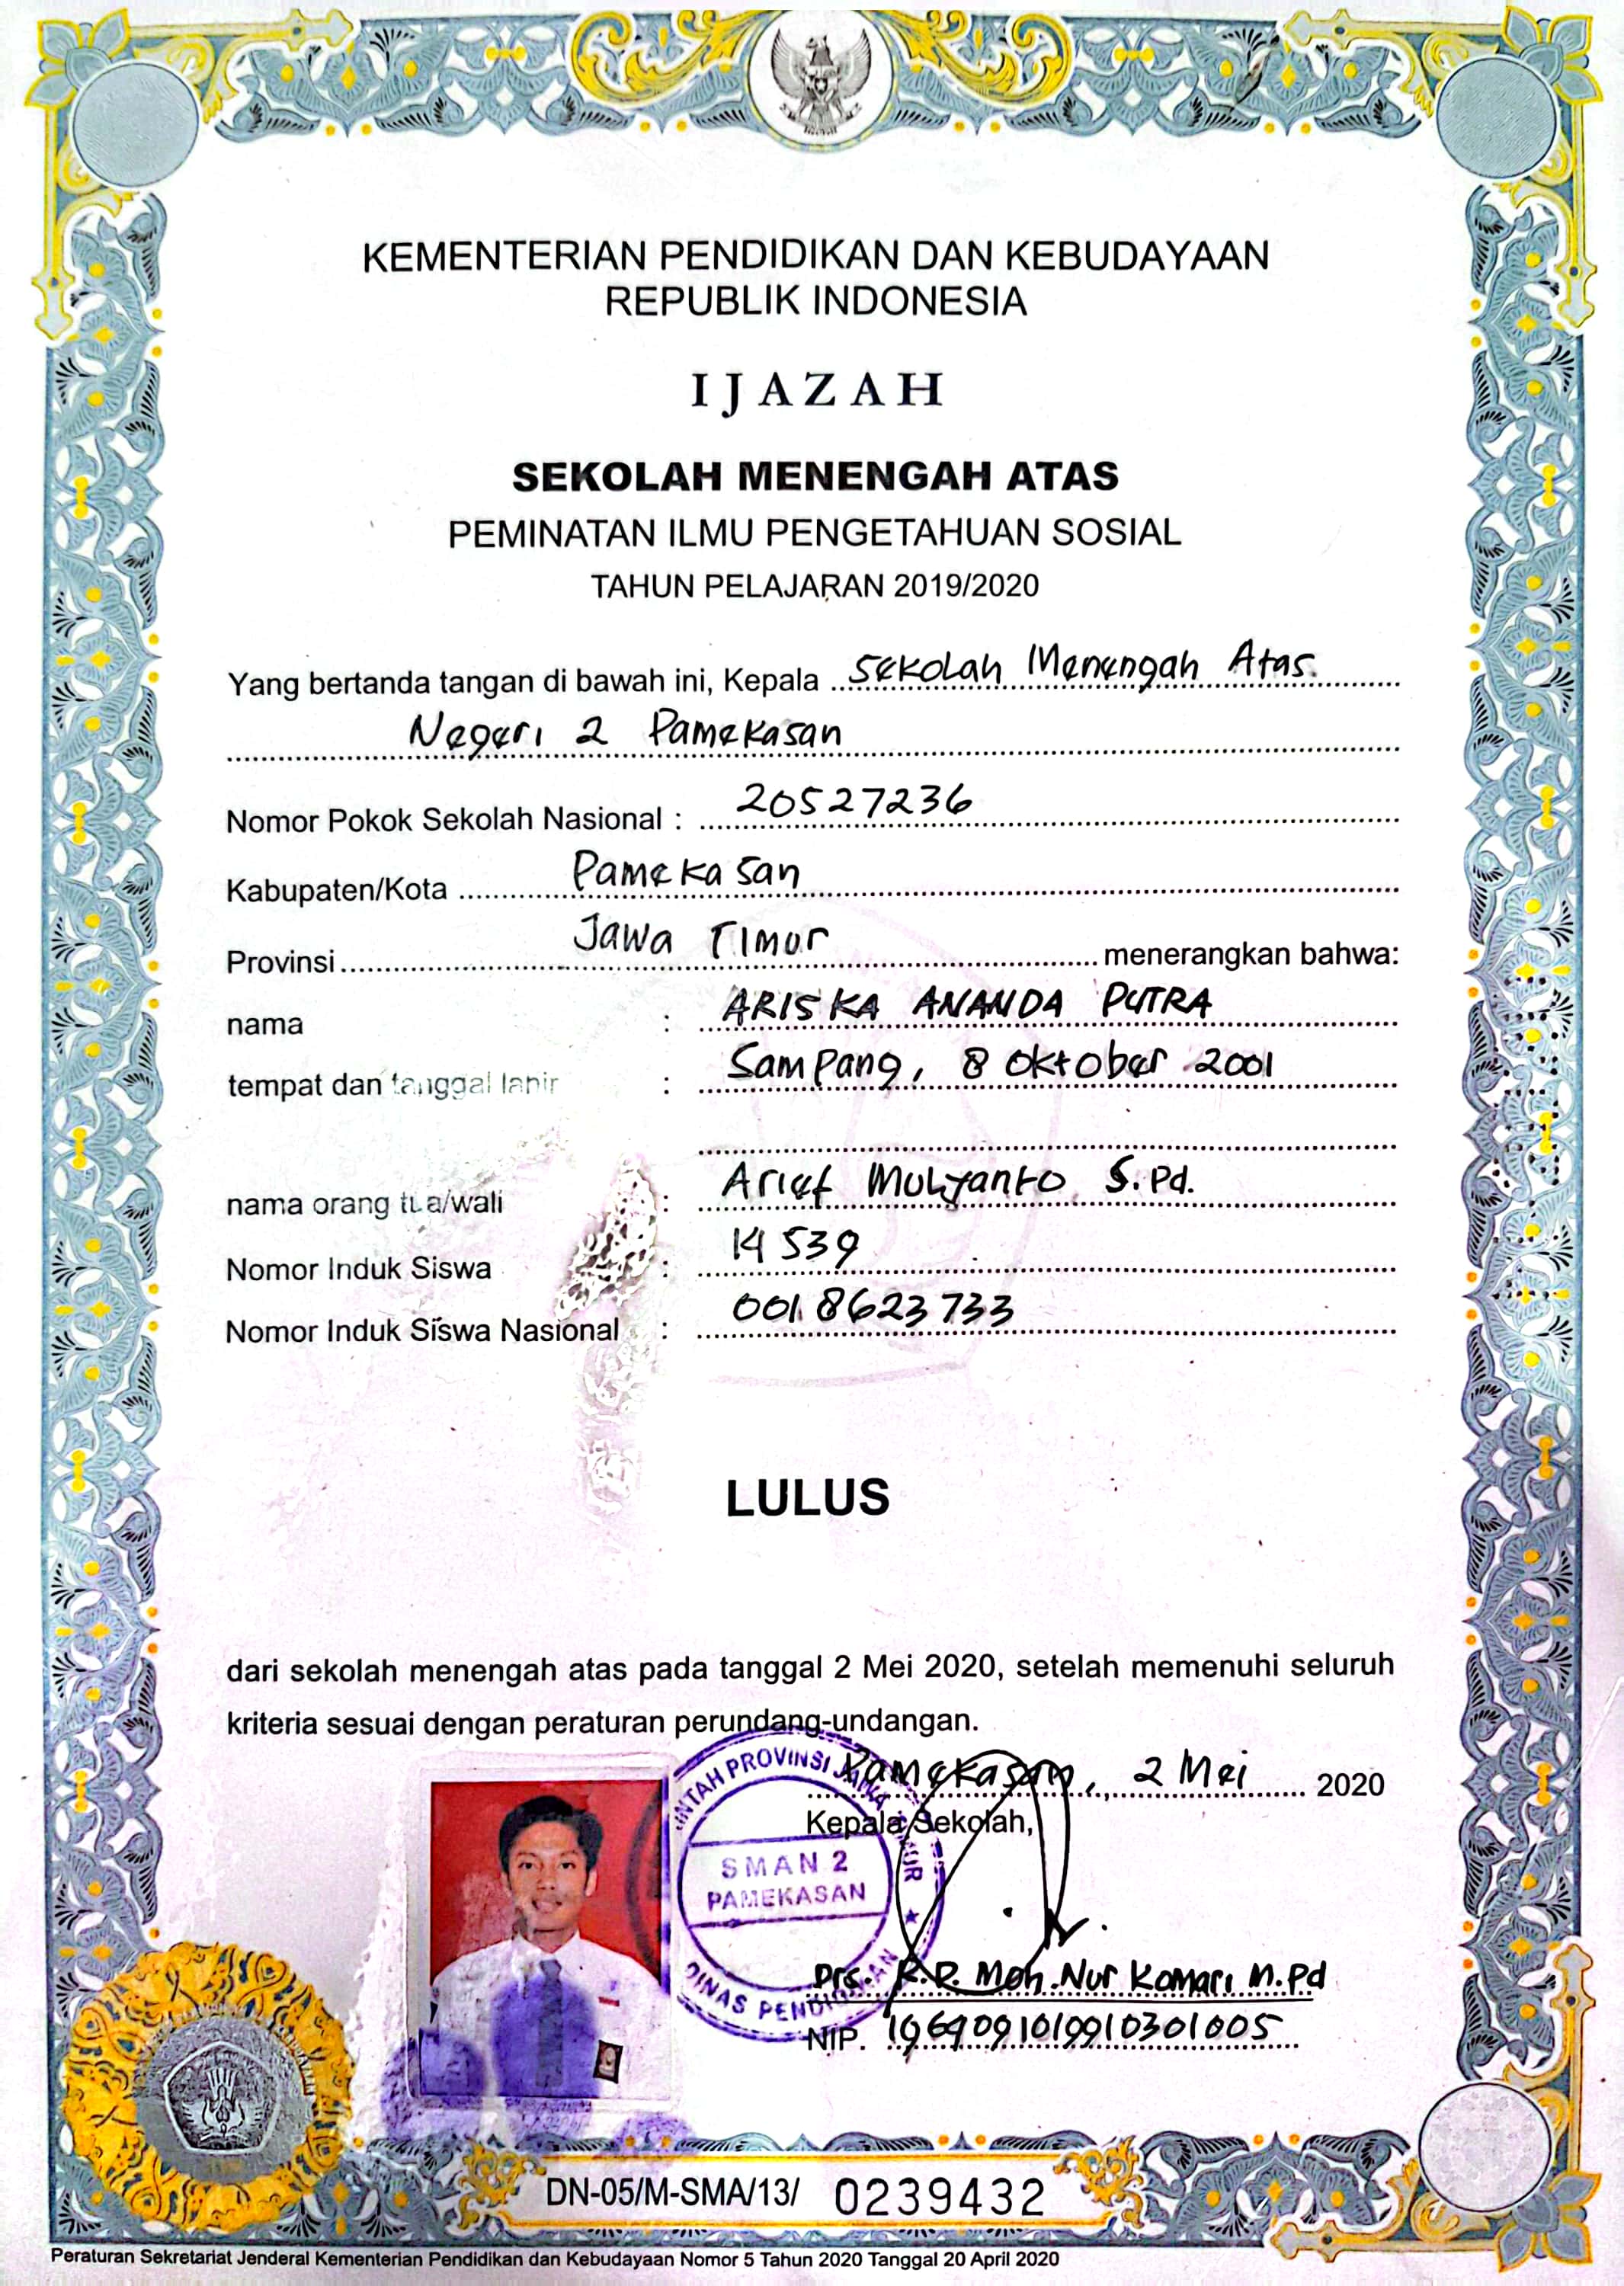 KEMENTERIAN PENDIDIKAN DAN KEBUDAYAAN
REPUBLIK INDONESIA
IJAZAH
SEKOLAH MENENGAH ATAS
PEMINATAN ILMU PENGETAHUAN SOSIAL
TAHUN PELAJARAN 2019/2020
Yang bertanda tangan di bawah ini, Kepala Sekolah Menengah Atas
Negeri 2 Pamekasan
Nomor Pokok Sekolah Nasional : 20527236
Kabupaten/Kota Pamekasan
Provinsi Jawa Timur menerangkan bahwa:
nama : ARISKA ANANDA PUTRA
tempat dan tanggal lahir : Sampang, 8 Oktober 2001
nama orang tua/wali : Arief Mulyanto S.Pd.
Nomor Induk Siswa : 14539
Nomor Induk Siswa Nasional : 0018623733
LULUS
dari sekolah menengah atas pada tanggal 2 Mei 2020, setelah memenuhi seluruh
kriteria sesuai dengan peraturan perundang-undangan.
Pamekasan, 2 Mei 2020
Kepala Sekolah,
SMAN 2
PAMEKASAN
DINAS PENDIDIKAN
Drs. R.P. Moh. Nur Komari M.Pd
NIP. 1964091019910301005
DN-05/M-SMA/13/ 0239432
Peraturan Sekretariat Jenderal Kementerian Pendidikan dan Kebudayaan Nomor 5 Tahun 2020 Tanggal 20 April 2020